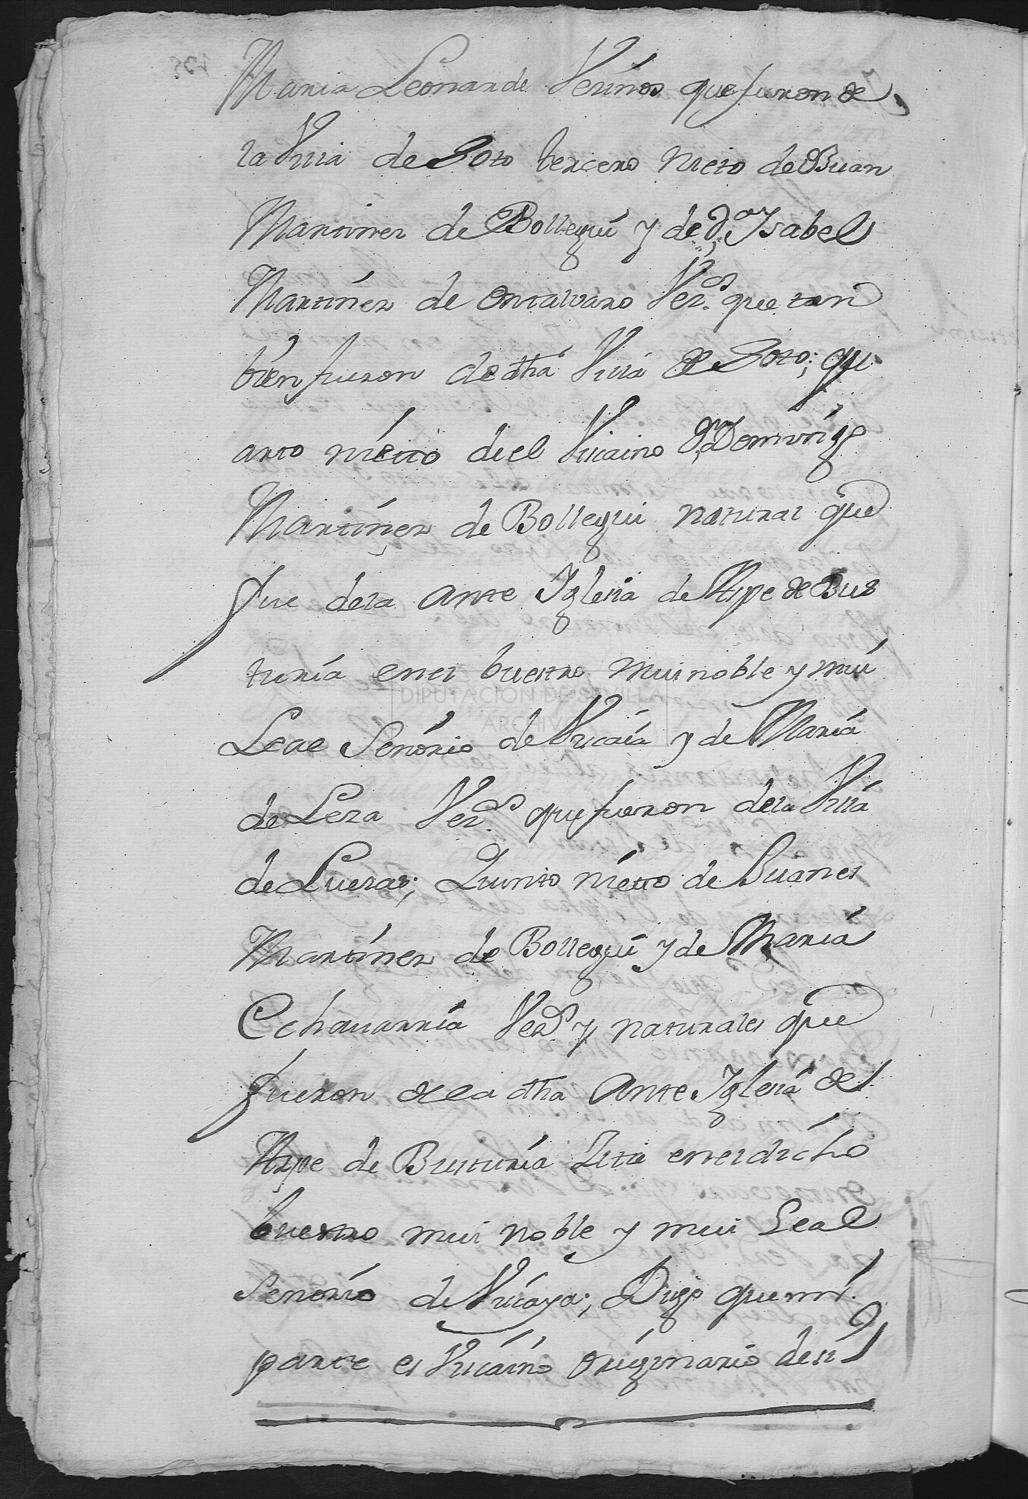 Maria Leonarde Vezinos que fueron de
la Villa de Soto tercero nieto de Juan
Martinez de Bollegui y de D.ª Ysabel
Martinez de Ontalvaro Vez.s que tan
bien fueron de dha Villa de Soto; qu
arto nietto de el Vizcaino D.n Domingo
Martinez de Bollegui natural que
fue de la Ante Iglesia de Axpe de Bus
turia en el buestro mui noble y mui
Leal Señorio de Vizcaia y de Maria
de Leza Vez.s que fueron de la Villa
de Luezas; Quinto nietto de Juanes
Martinez de Bollegui y de Maria
Echavarria Vez.s y naturales que
fueron de la dha Ante Iglesia de
Axpe de Busturia Sita en el dicho
buestro mui noble y mui Leal
Señorio de Vizcaya; Digo que mi
parte es Vizcaino originario de su
DIPUTACIÓN DE SEVILLA
ARCHIVO